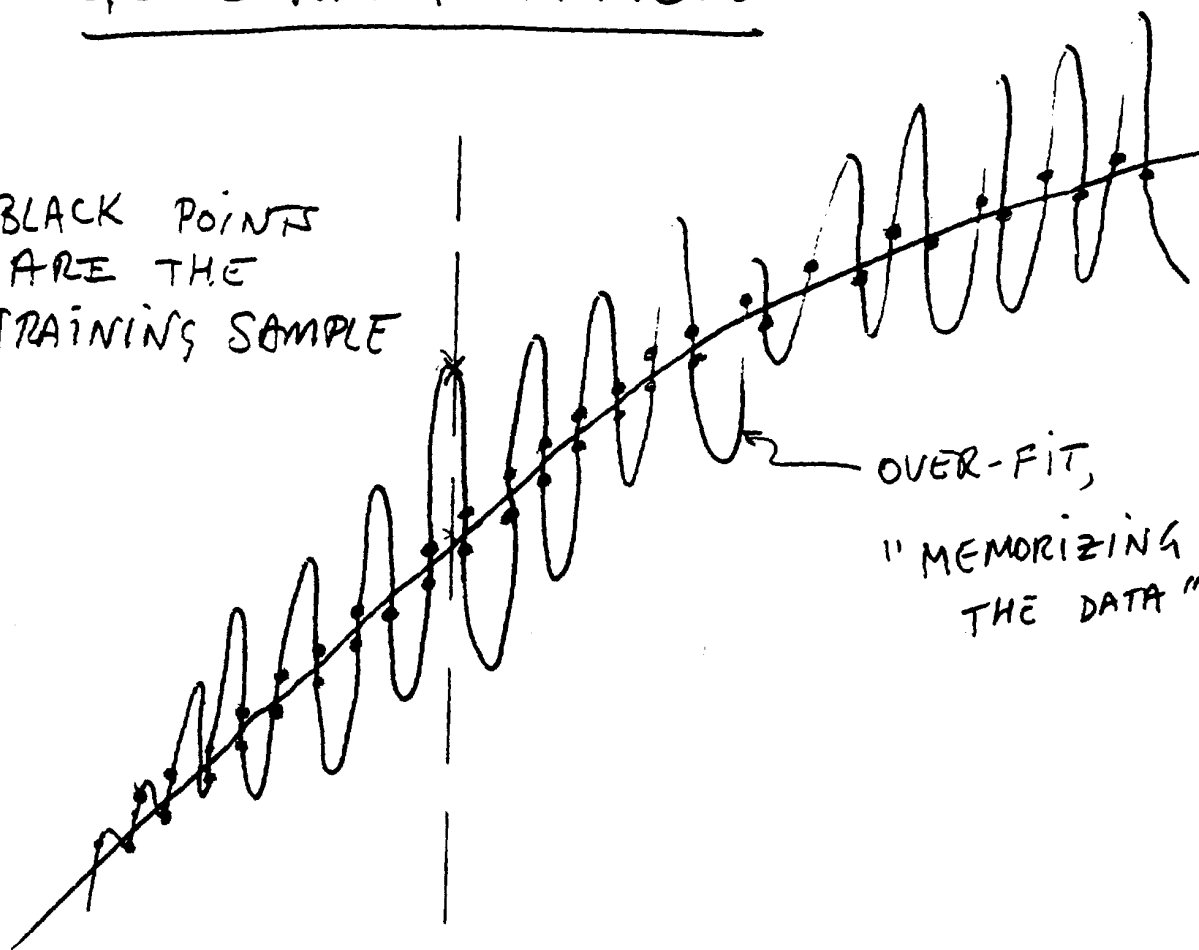 BLACK POINTS
ARE THE
TRAINING SAMPLE
OVER-FIT,
"MEMORIZING
THE DATA"